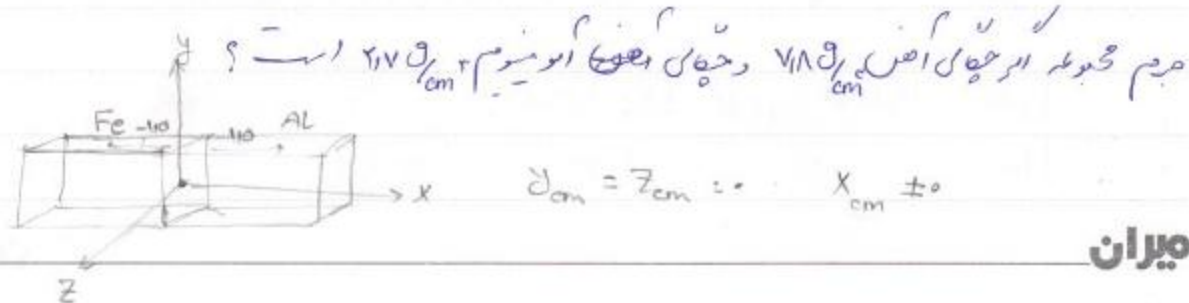 جرم مجموعه اگر چگالی آهن ۷٫۸ g/cm³ و چگالی آلومینیوم ۲٫۷ g/cm³ است ؟
y
Fe -۷٫۵ ۷٫۵ AL
x
y cm = Z cm = ۰ X cm ≠ ۰
Z
میران